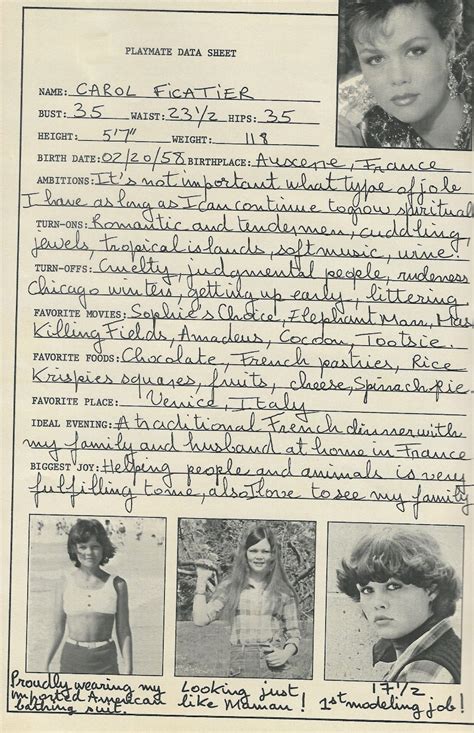 PLAYMATE DATA SHEET
NAME: CAROL FICATIER
BUST: 35 WAIST: 23 1/2 HIPS: 35
HEIGHT: 5'7" WEIGHT: 118
BIRTH DATE: 02/20/58 BIRTHPLACE: Auxerre, France
AMBITIONS: It's not important what type of job
I have as long as I can continue to grow spiritual
TURN-ONS: Romantic and tender men, cuddling
jewels, tropical islands, soft music, wine.
TURN-OFFS: Cruelty, judgmental people, rudeness
Chicago winters, getting up early, littering
FAVORITE MOVIES: Sophie's Choice, Elephant Man,
Killing Fields, Amadeus, Cocoon, Tootsie.
FAVORITE FOODS: Chocolate, French pastries, Rice
Krispies squares, fruits, cheese, Spinach pie
FAVORITE PLACE: Venice, Italy
IDEAL EVENING: A traditional French dinner with
my family and husband at home in France
BIGGEST JOY: Helping people and animals is very
fulfilling to me, also I love to see my family
Proudly wearing my
imported American
bathing suit.
Looking just
like Maman!
17 1/2
1st modeling job!